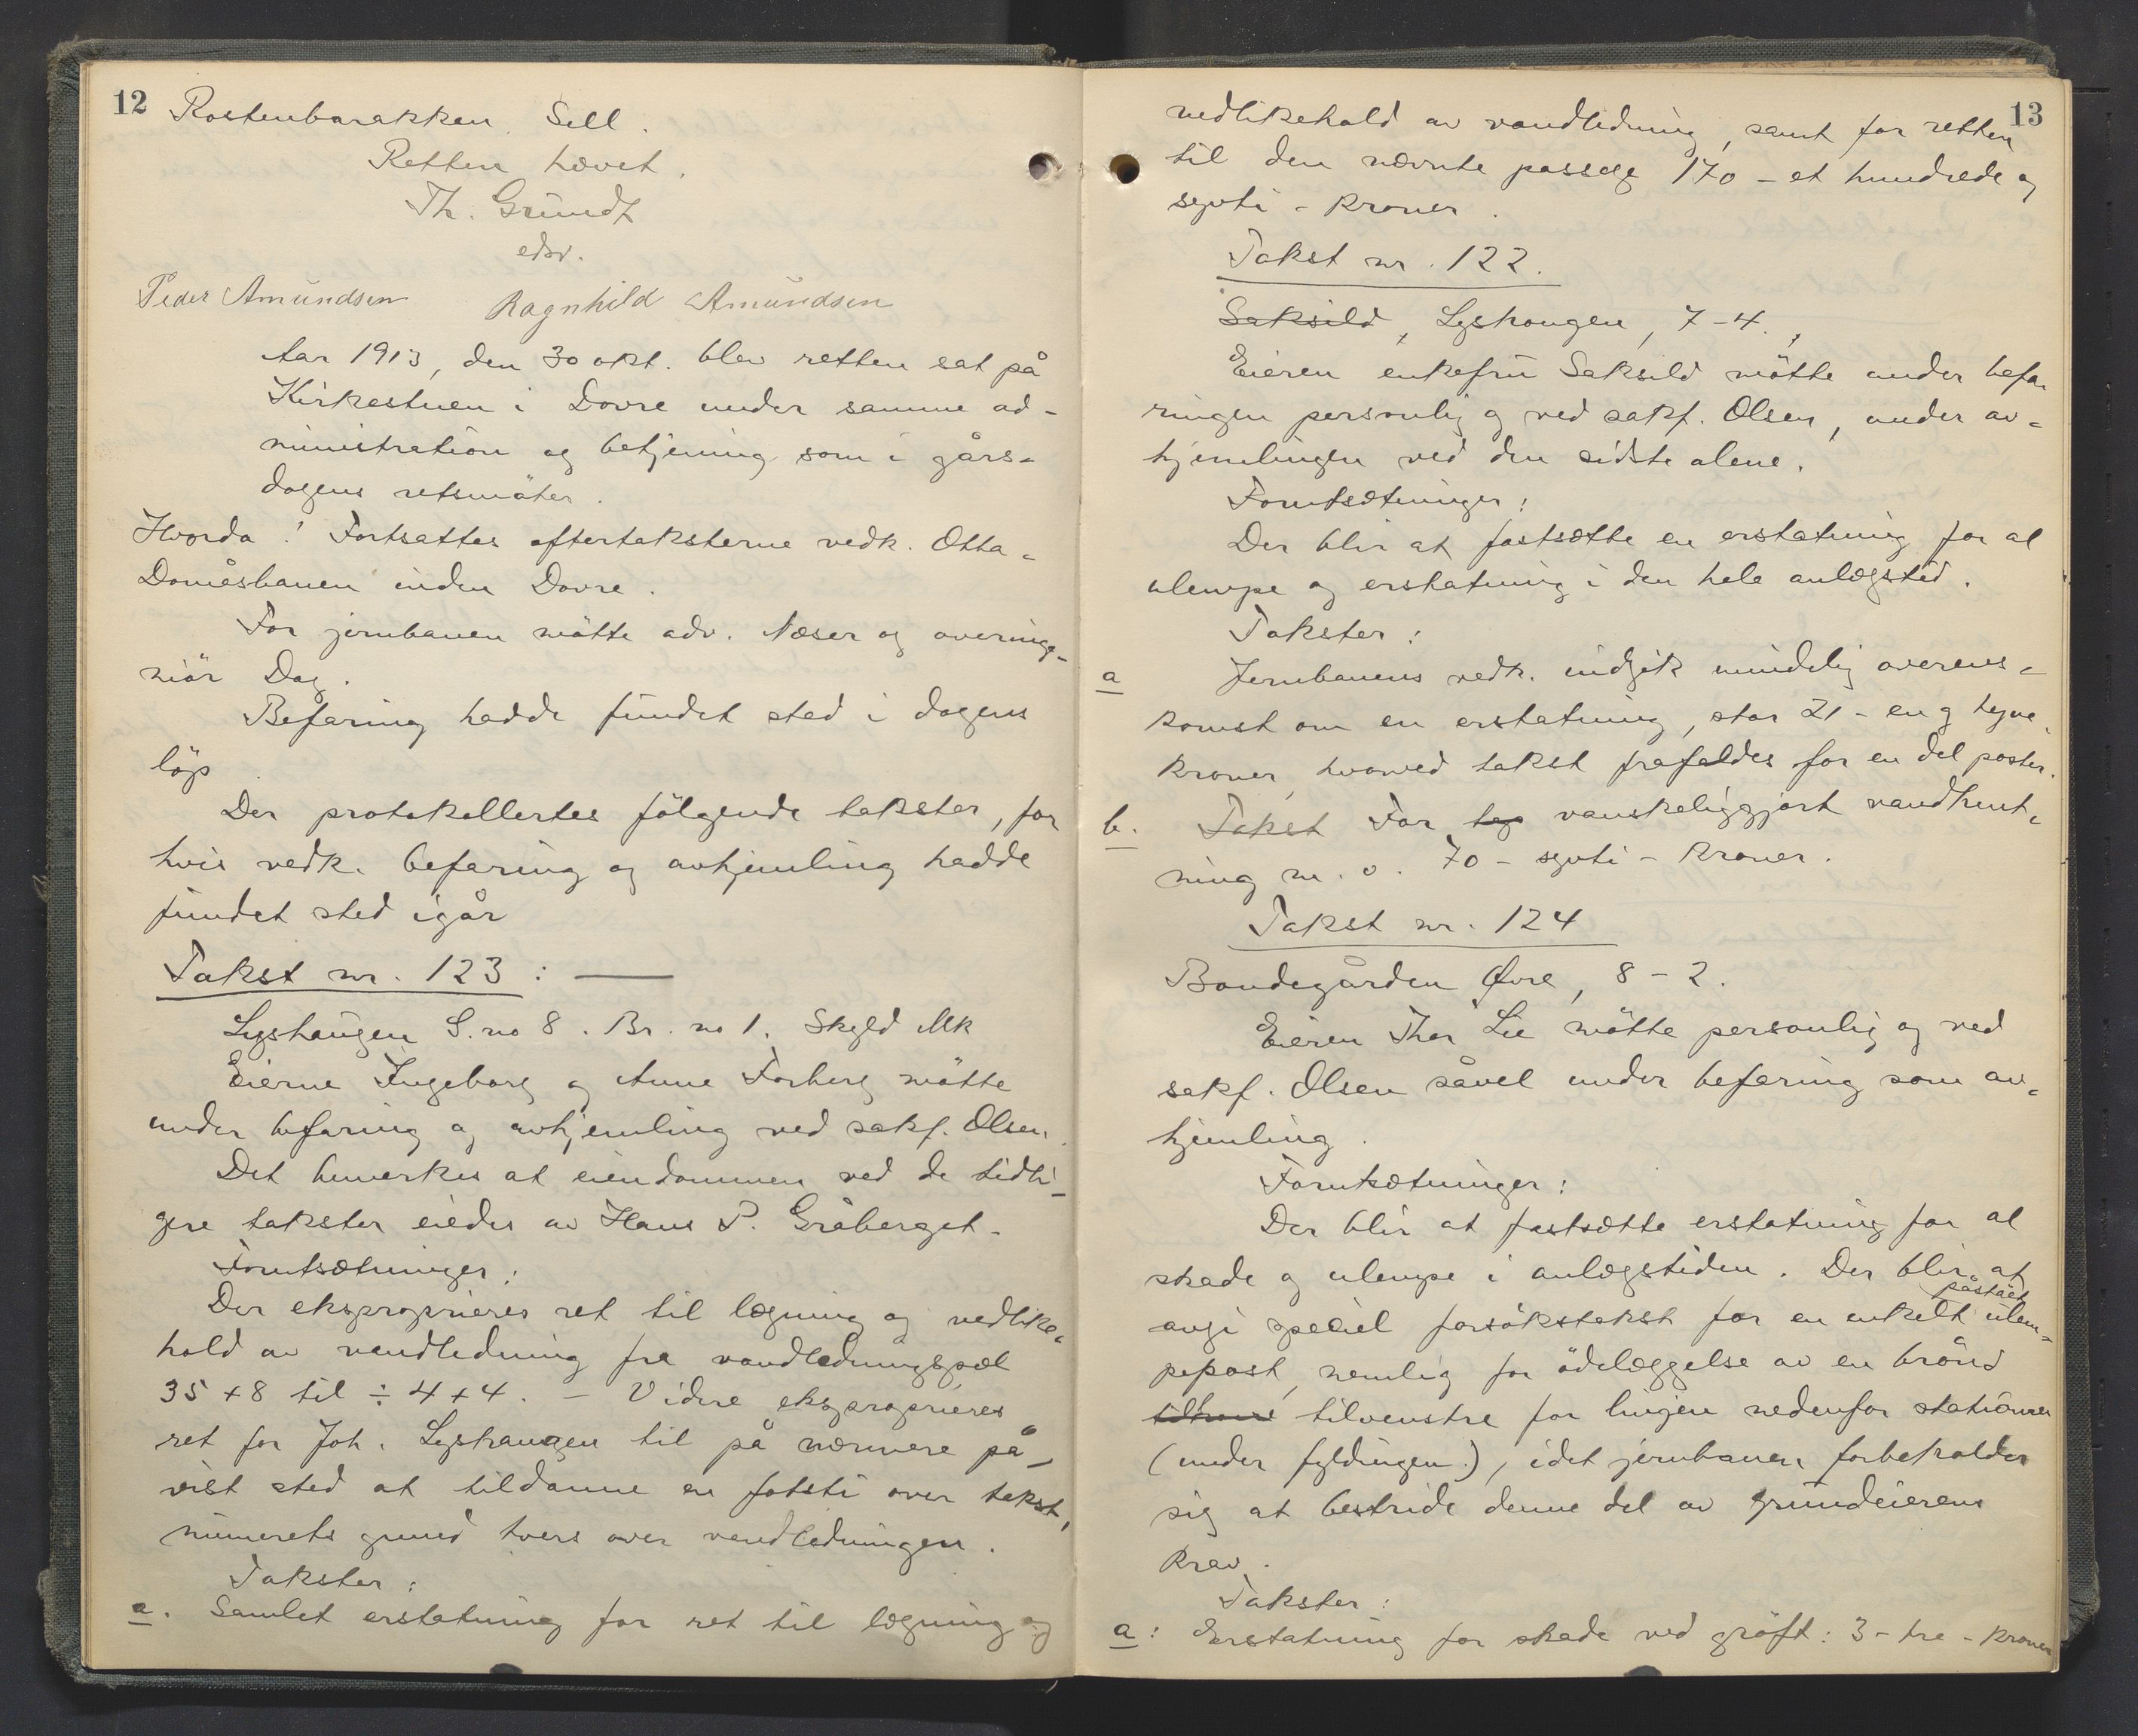 12
Rostenbarakken, Sell.
Retten hævet.
Th. Grundt
edsv.
Peder Amundsen Ragnhild Amundsen
Aar 1913, den 30 okt. blev retten sat på
Kirkestuen i Dovre under samme ad-
ministration og betjening som i gårs-
dagens retsmöter.
Hvorda! Fortsattes eftertaksterne vedk. Otta-
Domåsbanen inden Dovre.
For jernbanen mötte adv. Næser og overinge-
niör Dag.
Befaring hadde fundet sted i dagens
löp.
Der protokollertes fölgende takster, for
hvis vedk. befaring og avhjemling hadde
fundet sted igår
Takst nr. 123: —
Lyshaugen G.no 8. Br. no 1. Skyld Mk
Eierne Ingeborg og Anne Forberg mötte
under befaring og avhjemling ved sakf. Olsen.
Det bemerkes at eiendommen ved de tidli-
gere takster eiedes av Hans P. Gråberget.
Forutsætninger:
Der eksproprieres ret til lægning og vedlike-
hold av vandledning fra vandledningspæl
35 + 8 til ÷ 4 + 4. — Videre eksproprieres
ret for Joh. Lyshaugen til på nærmere på-
vist sted at tildanne en fotsti over takst-
numerets grund tvers over vandledningen.
Takster:
a. Samlet erstatning for ret til lægning og
13
vedlikehold av vandledning, samt for retten
til den nævnte passage 170 - et hundrede og
sytti - kroner.
Takst nr. 122.
Saksild, Lyshaugen, 7-4.,
Eieren enkefru Saksild mötte under befa-
ringen personlig og ved sakf. Olsen, under av-
hjemlingen ved den sidste alene.
Forutsætninger:
Der blir at fastsætte en erstatning for al
ulempe og erstatning i den hele anlægstid.
Takster:
a Jernbanens vedk. indgik mindelig overens-
komst om en erstatning, stor 21 - en og tyve
kroner, hvorved takst frafaldes for en del poster.
b. Takst For tap vanskeliggjort vandhent-
ning m. v. 70 - sytti - kroner.
Takst nr. 124
Bondegården Øvre, 8-2.
Eieren Thor Lie mötte personlig og ved
sakf. Olsen såvel under befaring som av-
hjemling.
Forutsætninger:
Der blir at fastsætte erstatning for al
skade og ulempe i anlægstiden. Der blir at
påstået
avgi speciel forsökstakst for en enkelt ulem-
pepost, nemlig for ödelæggelse av en brönd
tilvenstre for linjen nedenfor stationen
(under fyldingen), idet jernbanen forbeholder
sig at bestride denne del av grundeierens
krav.
Takster:
a: Erstatning for skade ved gröft: 3 - tre - kroner